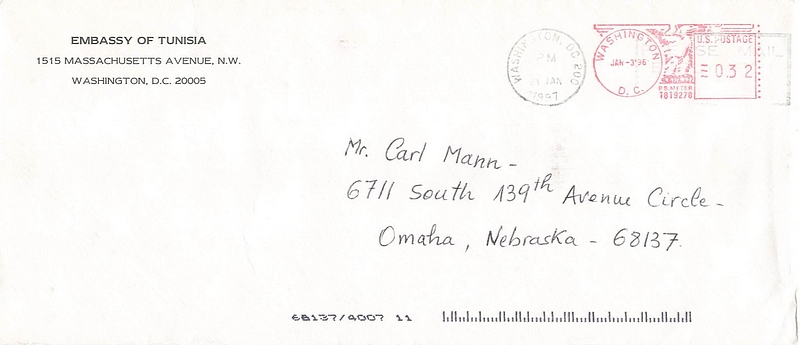 EMBASSY OF TUNISIA
1515 MASSACHUSETTS AVENUE, N.W.
WASHINGTON, D.C. 20005
WASHINGTON, DC 200
PM
JAN
1997
WASHINGTON
JAN -3'96
D.C.
P.B. METER
1819278
U.S. POSTAGE
0.32
Mr. Carl Mann -
6711 South 139th Avenue Circle -
Omaha, Nebraska - 68137.
68137/4007 11